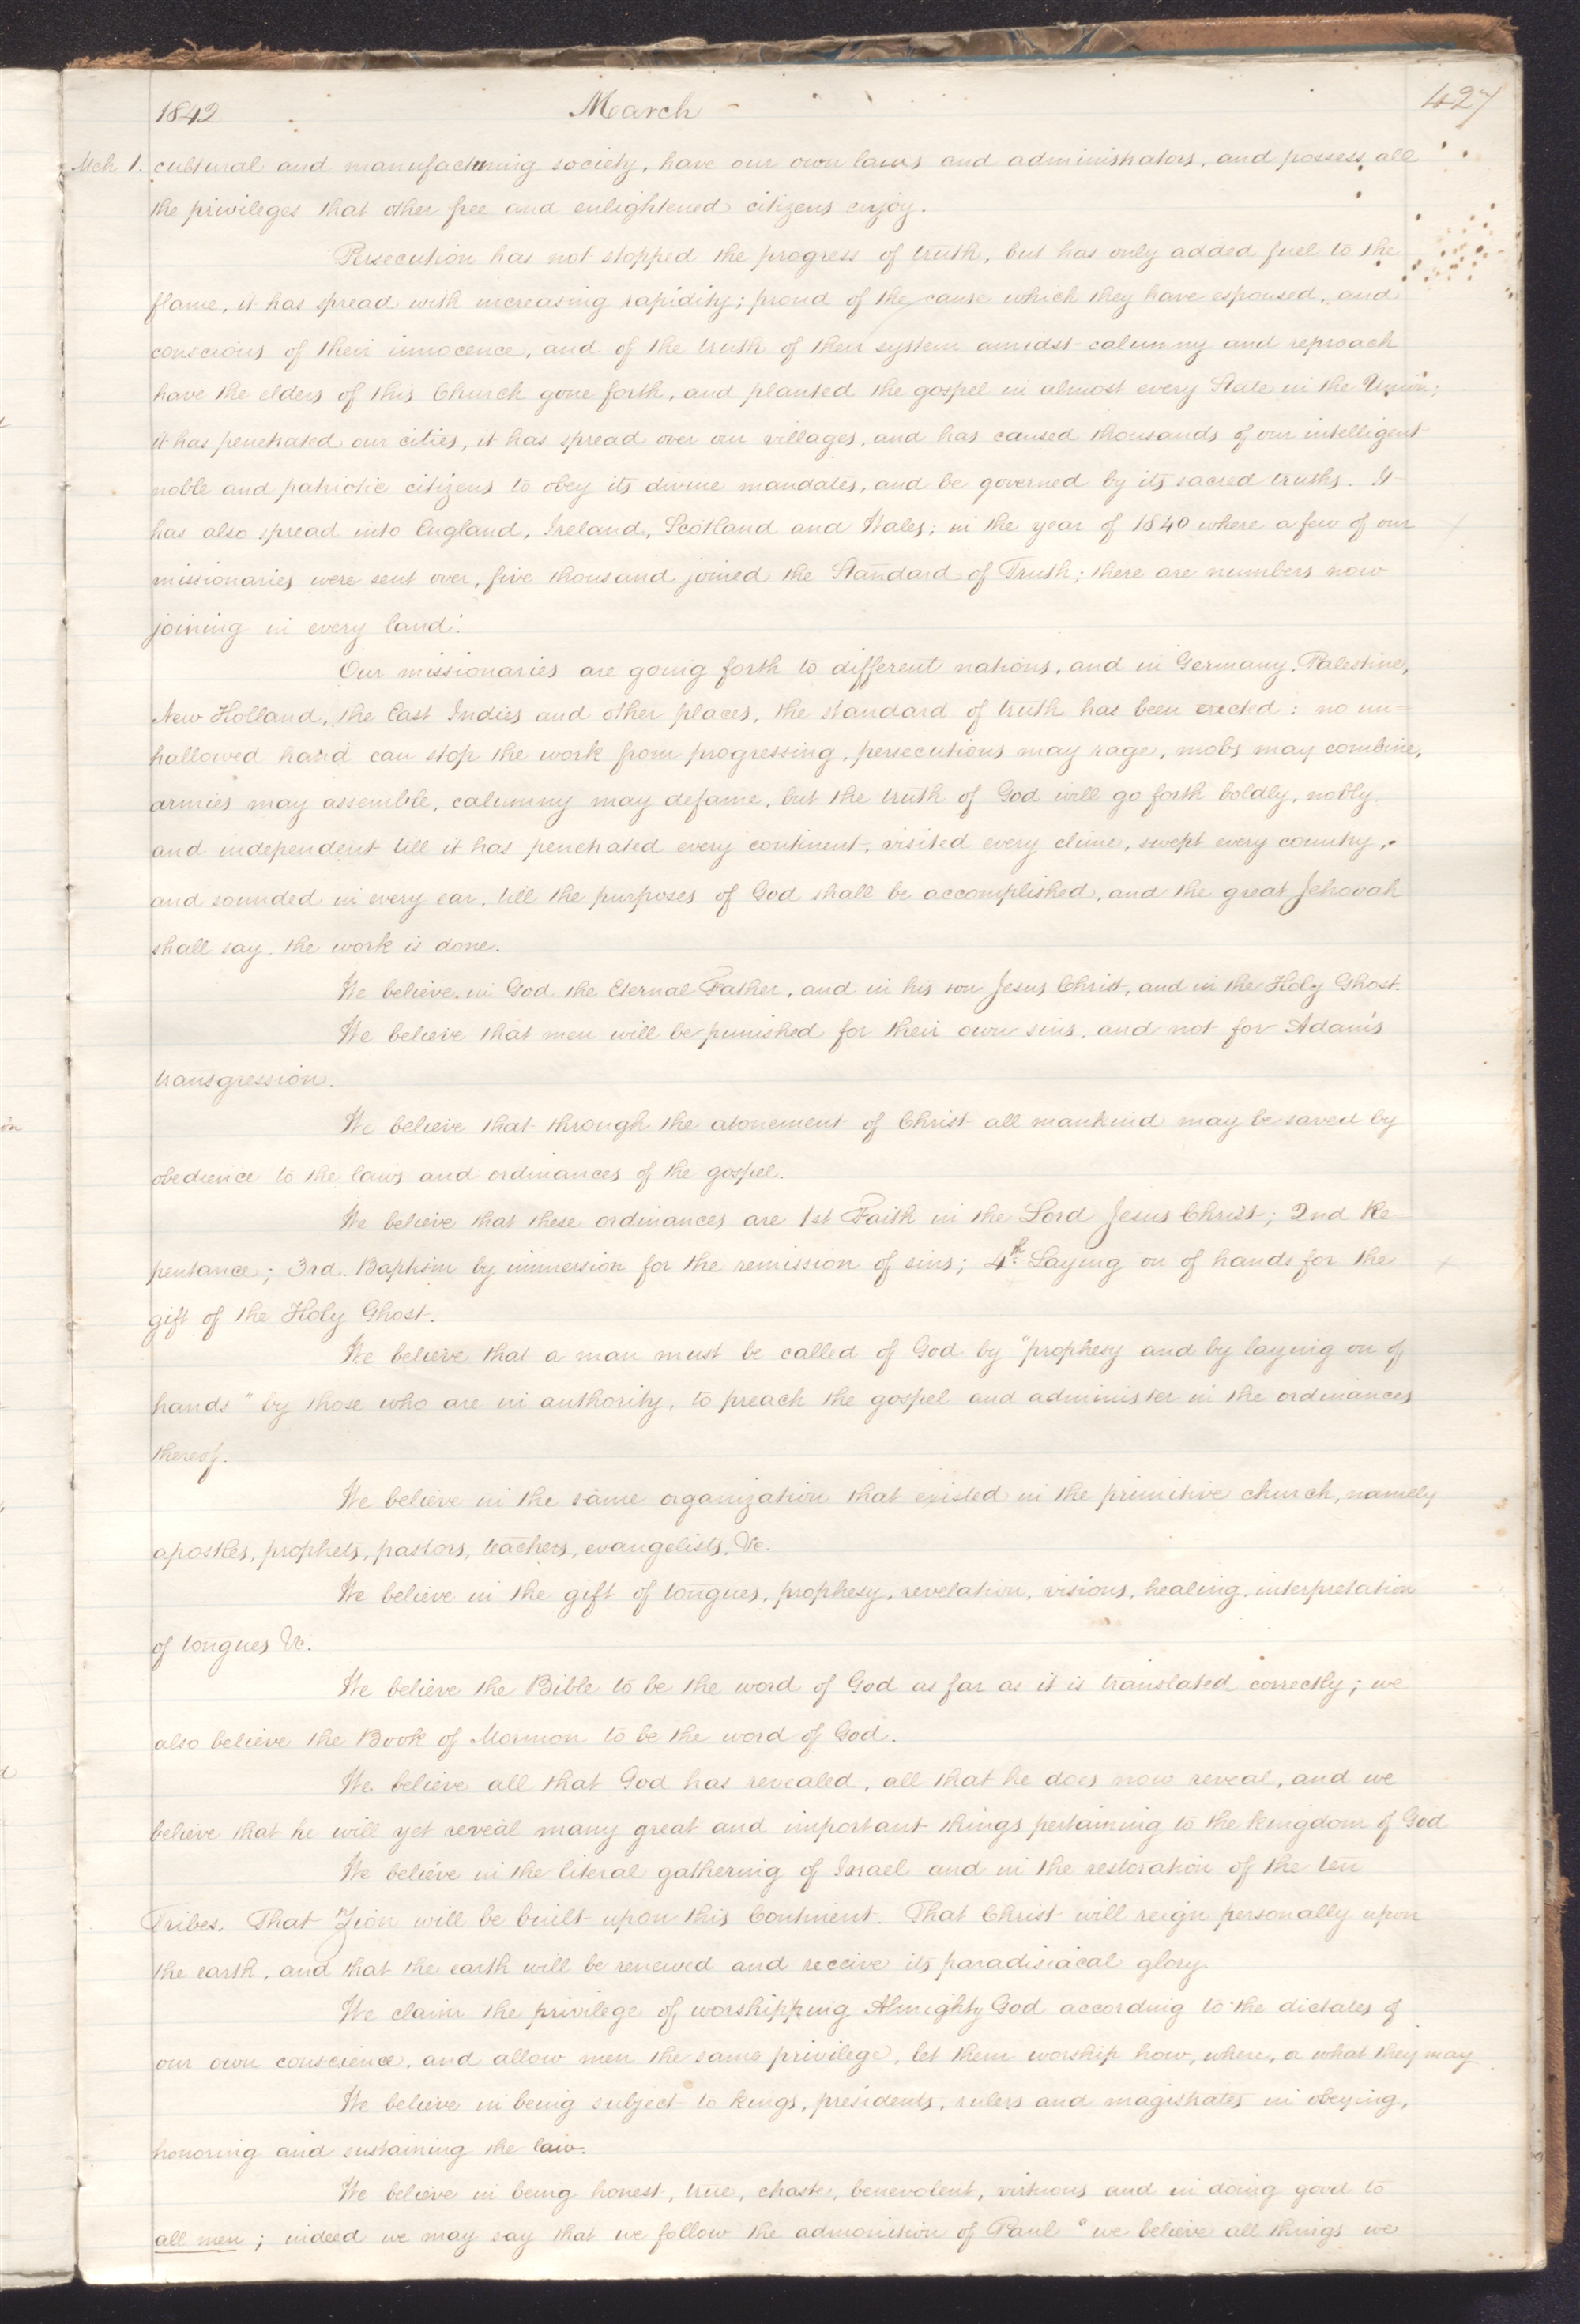 1842 March 427
Mch 1. cultural and manufacturing society, have our own laws and administrators, and possess all
the privileges that other free and enlightened citizens enjoy.
Persecution has not stopped the progress of truth, but has only added fuel to the
flame, it has spread with increasing rapidity; proud of the cause which they have espoused, and
conscious of their innocence, and of the truth of their system amidst calumny and reproach
have the elders of this Church gone forth, and planted the gospel in almost every State in the Union;
it has penetrated our cities, it has spread over our villages, and has caused thousands of our intelligent
noble and patriotic citizens to obey its divine mandates, and be governed by its sacred truths. It
has also spread into England, Ireland, Scotland and Wales; in the year of 1840 where a few of our
missionaries were sent over, five thousand joined the Standard of Truth; there are numbers now
joining in every land.
Our missionaries are going forth to different nations, and in Germany, Palestine,
New Holland, the East Indies and other places, the standard of truth has been erected: no un=
hallowed hand can stop the work from progressing, persecutions may rage, mobs may combine,
armies may assemble, calumny may defame, but the truth of God will go forth boldly, nobly
and independent till it has penetrated every continent, visited every clime, swept every country,
and sounded in every ear, till the purposes of God shall be accomplished, and the great Jehovah
shall say the work is done.
We believe in God the Eternal Father, and in his son Jesus Christ, and in the Holy Ghost.
We believe that men will be punished for their own sins, and not for Adam's
transgression.
We believe that through the atonement of Christ all mankind may be saved by
obedience to the laws and ordinances of the gospel.
We believe that these ordinances are 1st Faith in the Lord Jesus Christ; 2nd Re-
pentance; 3rd. Baptism by immersion for the remission of sins; 4th. Laying on of hands for the
gift of the Holy Ghost.
We believe that a man must be called of God by "prophesy and by laying on of
hands" by those who are in authority, to preach the gospel and administer in the ordinances
thereof.
We believe in the same organization that existed in the primitive church, namely
apostles, prophets, pastors, teachers, evangelists, &c.
We believe in the gift of tongues, prophesy, revelation, visions, healing, interpretation
of tongues &c.
We believe the Bible to be the word of God as far as it is translated correctly; we
also believe the Book of Mormon to be the word of God.
We believe all that God has revealed, all that he does now reveal, and we
believe that he will yet reveal many great and important things pertaining to the kingdom of God
We believe in the literal gathering of Israel and in the restoration of the ten
Tribes. That Zion will be built upon this Continent. That Christ will reign personally upon
the earth, and that the earth will be renewed and receive its paradisiacal glory.
We claim the privilege of worshipping Almighty God according to the dictates of
our own conscience, and allow men the same privilege, let them worship how, where, or what they may
We believe in being subject to kings, presidents, rulers and magistrates in obeying,
honoring and sustaining the law.
We believe in being honest, true, chaste, benevolent, virtuous and in doing good to
all men; indeed we may say that we follow the admonition of Paul "we believe all things we